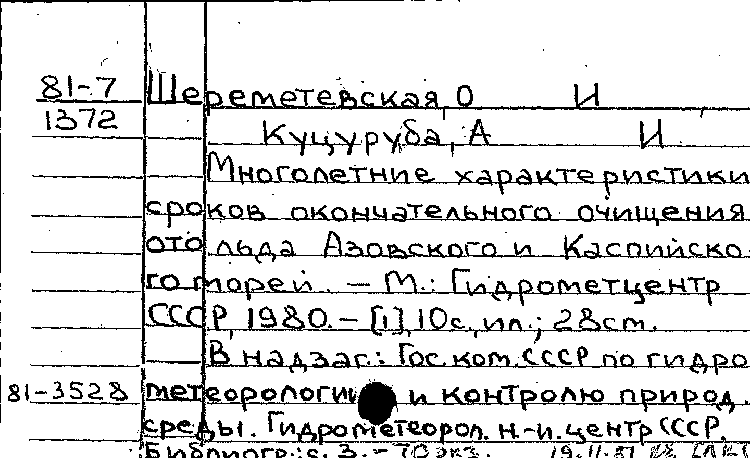 81-7 Шереметевская, О И
1372 Куцуруба, А И
Многолетние характеристики
сроков окончательного очищения
ото льда Азовского и Каспийско-
го морей. - М.: Гидрометцентр
СССР, 1980. - [1], 10с., ил.; 28см.
В надзаг.: Гос. ком. СССР по гидро
81-3528 метеорологии и контролю природ.
среды. Гидрометеорол. н.-и. центр СССР.
Библиогр.: с. 3. - 70 экз. 19.11.81